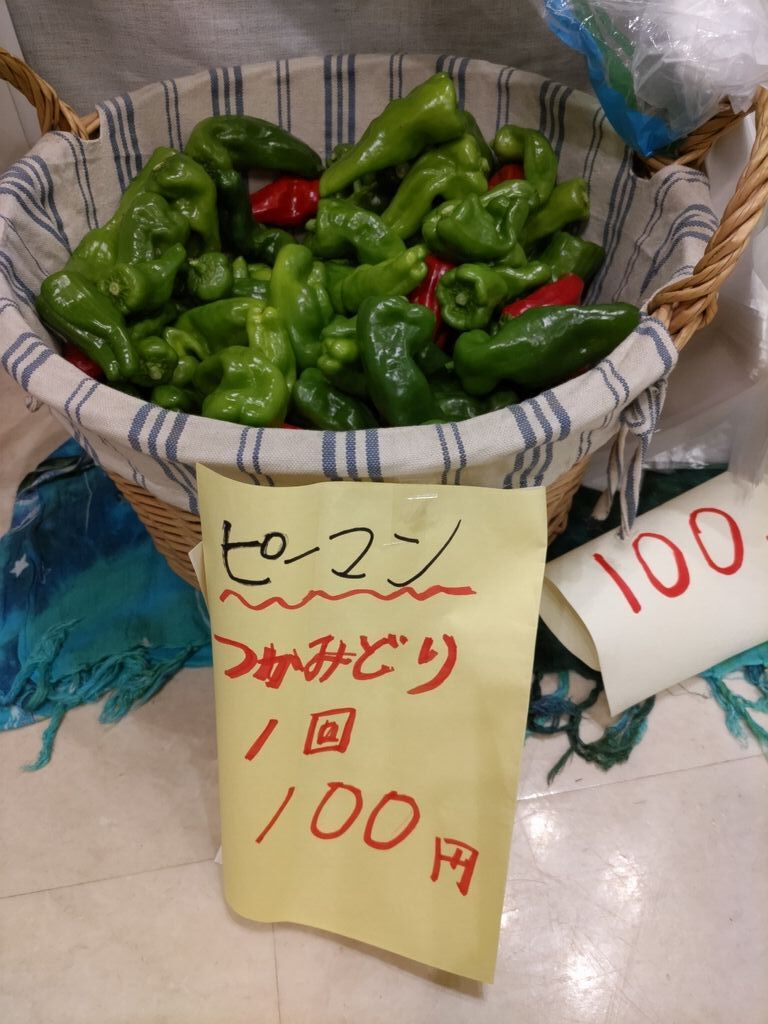 ピーマン
つかみどり
1回
100円
100.